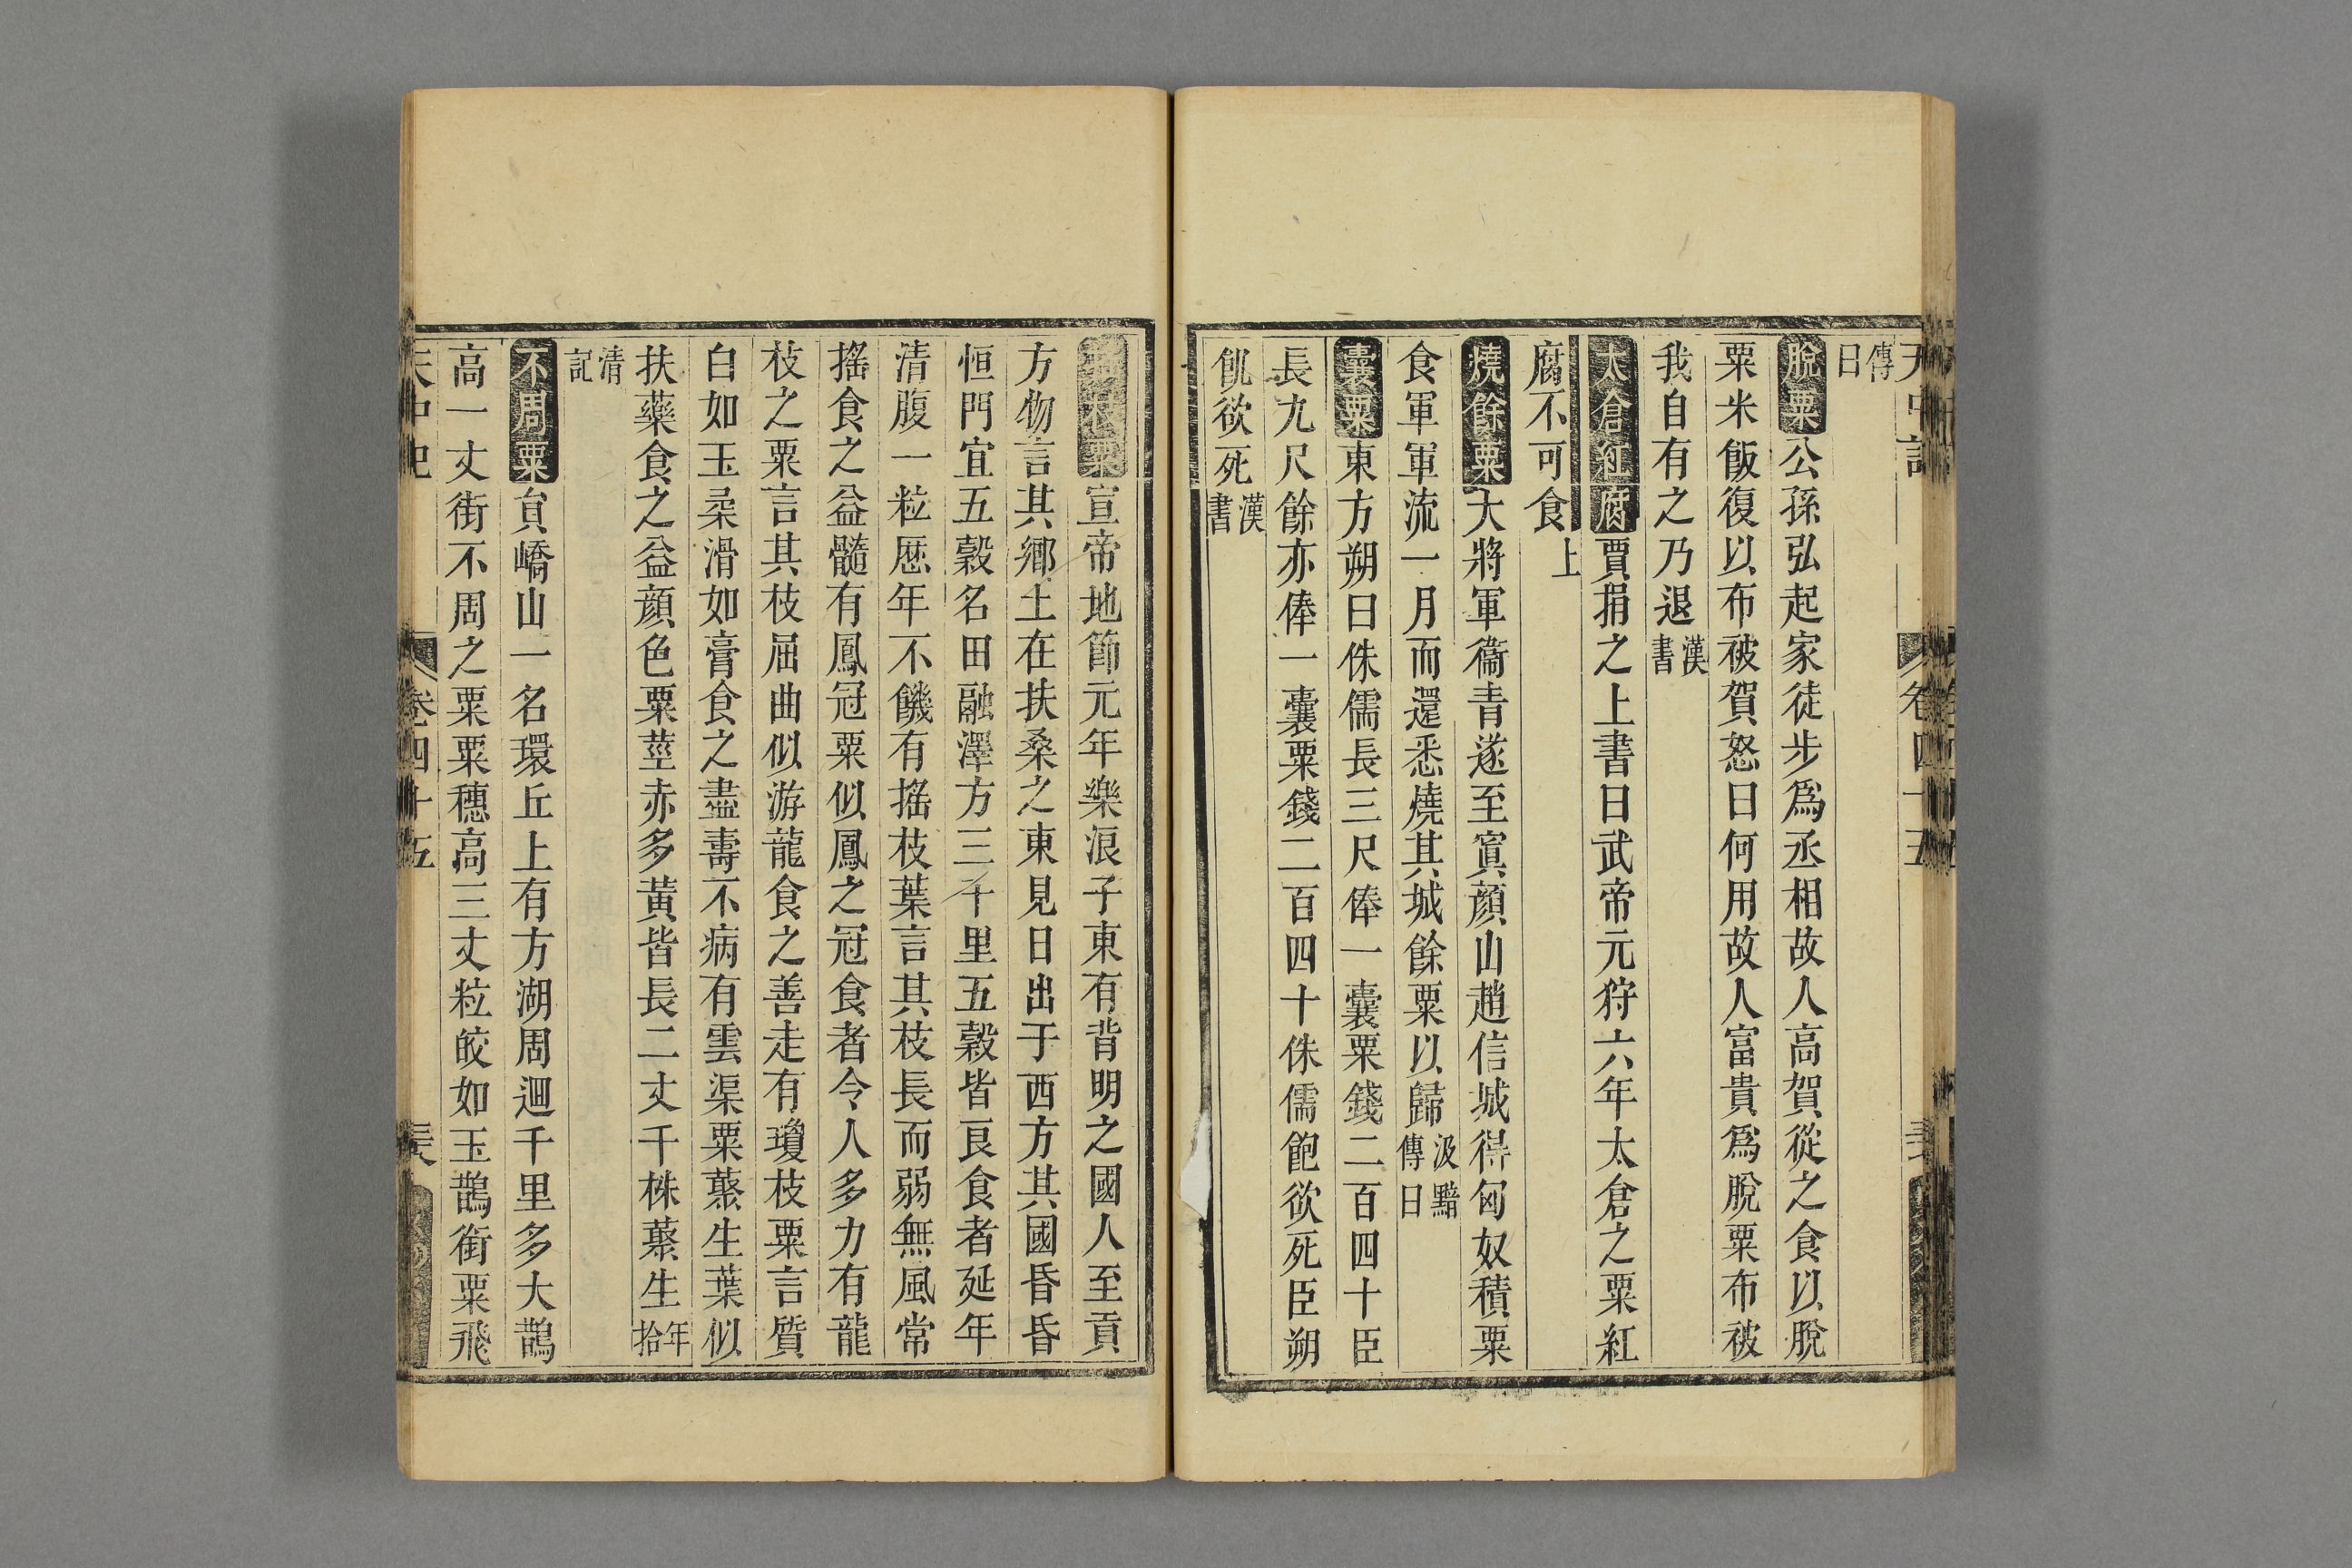 傳曰
脫粟公孫弘起家徒步爲丞相故人高賀從之食以脫
粟米飯復以布被賀怒曰何用故人富貴爲脫粟布被
我自有之乃退漢書
太倉紅腐賈捐之上書曰武帝元狩六年太倉之粟紅
腐不可食上
燒餘粟大將軍衞青遂至窴顏山趙信城得匈奴積粟
食軍軍流一月而還悉燒其城餘粟以歸汲黯傳曰
囊粟東方朔曰侏儒長三尺俸一囊粟錢二百四十臣
長九尺餘亦俸一囊粟錢二百四十侏儒飽欲死臣朔
飢欲死漢書
枝粟宣帝地節元年樂浪子東有背明之國人至貢
方物言其鄉土在扶桑之東見日出于西方其國昏昏
恒門宜五穀名田融澤方三千里五穀皆良食者延年
清腹一粒歷年不饑有搖枝葉言其枝長而弱無風常
搖食之益髓有鳳冠粟似鳳之冠食者令人多力有龍
枝之粟言其枝屈曲似游龍食之善走有瓊枝粟言質
白如玉柔滑如膏食之盡壽不病有雲渠粟藂生葉似
扶藥食之益顏色粟莖赤多黃皆長二丈千株藂生拾年
清記
不周粟貟嶠山一名環丘上有方湖周迴千里多大鵲
高一丈街不周之粟粟穗高三丈粒皎如玉鵲銜粟飛
卷四十五